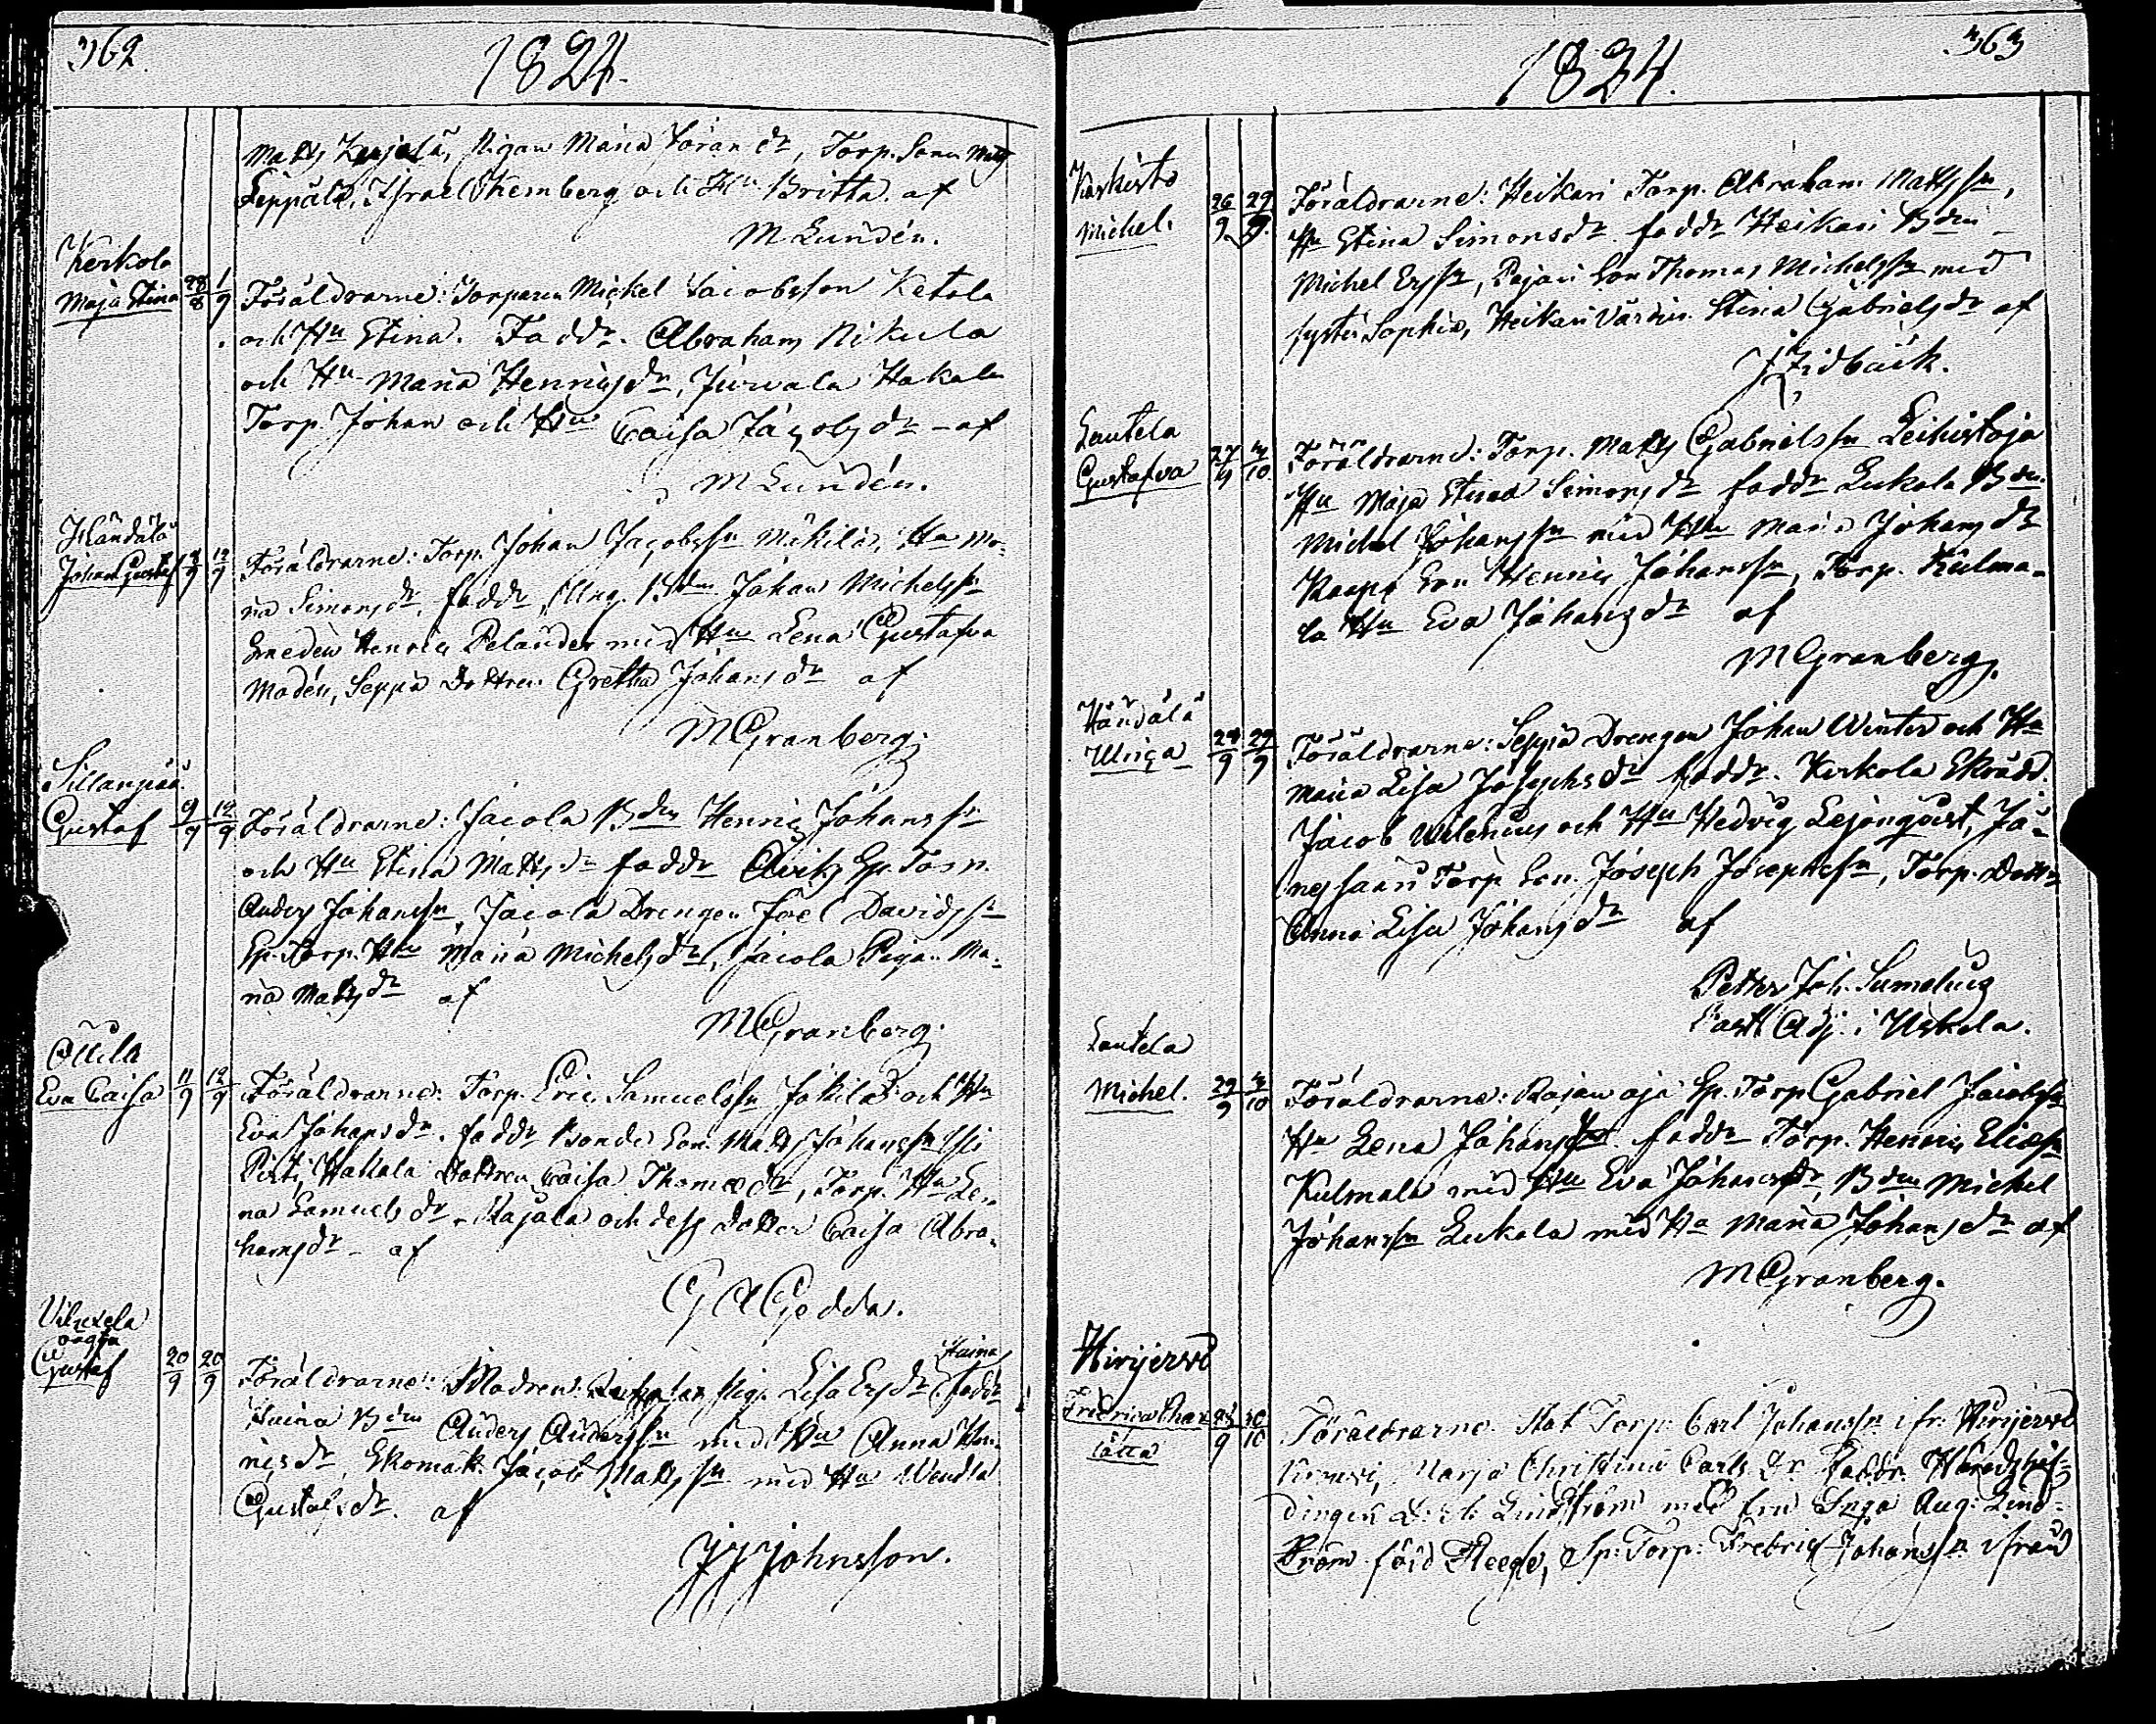 362.
1824.
Matts Karjala, Pigan Maria Jöran dr, Torp. Sonen Matts
Seppälä, Israel Stenberg och Hu Britta. af
M Lundén.
Kerkola
Maja Stina 28/8 1/9 Föräldrarne: Torparen Mickel Jacobsson Ketola
och Hu Stina. Faddr. Abraham Nikula
och Hu Maria Henricsdr, Juvvala Hakala
Torp. Johan och Hu Caisa Jacobsdr - af
M Lundén.
Händälä
Johan Gustaf 9/9 12/9 Föräldrarne: Torp. Johan Jacobssn Mäkilä, Hu Ma-
ria Simonsdr, faddr, Ung. Bdn Johan Michelssn
Smeden Henric Pelander med Hu Lena Gustafva
Modén, Seppä Dottren Gretha Johansdr af
M Granberg.
Sillanpää
Gustaf 9/9 12/9 Föräldrarne: Jacola Bdn Henric Johanssn
och Hu Stina Mattsdr faddr Sp. Torp.
Anders Johanssn, Jacola Drengen Joel Davidssn
Sp. Torp. Hu Maria Michelsdr, Jacola Pigan Ma-
ria Mattsdr af
M Granberg.
Ollila
Eva Caisa 11/9 12/9 Föräldrarne: Torp. Eric Samuelssn Jokila och Hu
Eva Johansdr. faddr Bonde Son Matts Johanssn
Pirti, Hakala Dottren Caisa Thomædr, Torp. Hu Le-
na Samuelsdr. Rajala och dess dotter Caisa Abra-
hamsdr - af
G A Gedda.
Vihxela
oägta
Gustaf 20/9 20/9 Föräldrarne: Modren: Pig. Lisa Ersdr faddr
Haina
Haina Bdn Anders Anderssn med Hu Anna Hen-
ricsdr, Skomak. Jacob Mattssn med Hu Wendla
Gustafsdr. af
J J Johnsson.
363
1824.
Kaskisto
Michel. 26/9 29/9 Föräldrarne: Heikari Torp. Abraham Mattssn,
Hu Stina Simonsdr. faddr Heikari Bdn
Michel Erssn, Pajari Son Thomas Michelssn med
syster Sophia, Heikari Värdin. Stina Gabrielsdr af
J Zidbäck.
Lautela
Gustafva 27/9 3/10 Föräldrarne: Torp. Matts Gabrielssn Leikistoja
Hu Maja Stina Simonsdr faddr Lukala Bdn
Michel Johanssn med Hu Maria Johansdr
Kaapo Son Henric Johanssn, Torp. Kulma-
la Hu Eva Johansdr af
M Granberg.
Händälä
Ulrica 29/9 29/9 Föräldrarne: Seppä Drengen Johan Winter och Hu
Maria Lisa Josephsdr faddr. Kerkola Skrädd.
Jacob Wilenius och Hu Hedvig Lejonqvist, Jä-
nessaari Torp Son. Joseph Josephssn, Torp. Dottr
Anna Lisa Johansdr af
Petter Joh. Sumelius
Past. Adj. i Uskela.
Lautela
Michel. 29/9 3/10 Föräldrarne: Rajan oja Sp. Torp Gabriel Jacobssn
Hu Lena Johansdr. faddr Torp. Henric Eliæsn
Kulmala med Hu Eva Johansdr, Bdn Michel
Johanssn Lukala med Hu Maria Johansdr af
M Granberg.
Hirvijervi
Fridrica Char-
lotta 28/9 10/10 Föräldrarne. Stat Torp. Carl Johanssn ifr. Hirvijervi
Marja Christina Carls Dr Faddr. Häradshöf-
dingen Lindström med fru Inga Aug: Lind-
ström född Sp: Torp: Fredric Johanssn ifrån